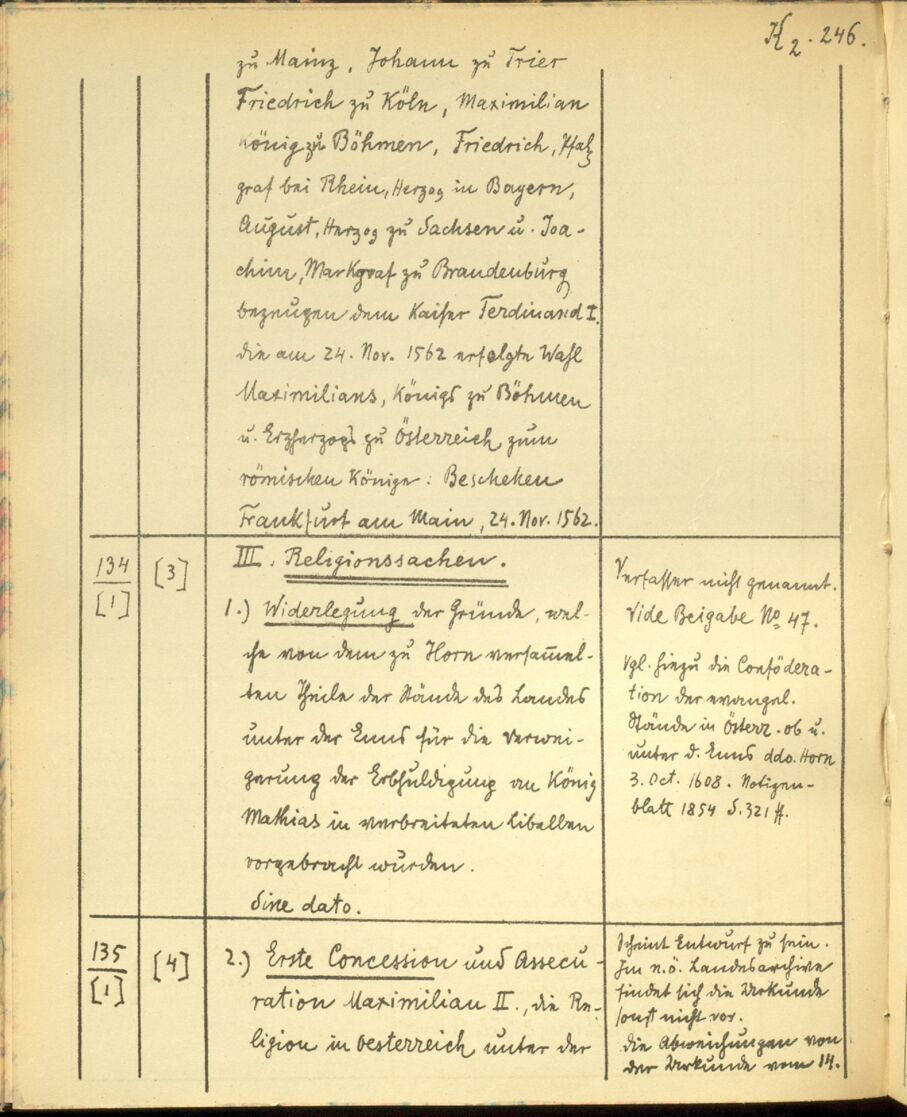 K2. 246.
zu Mainz, Johann zu Trier
Friedrich zu Köln, Maximilian
König zu Böhmen, Friedrich, Pfalz
graf bei Rhein, Herzog in Bayern,
August, Herzog zu Sachsen u. Joa-
chim, Markgraf zu Brandenburg
bezeugen dem Kaiser Ferdinand I.
die am 24. Nov. 1562 erfolgte Wahl
Maximilians, Königs zu Böhmen
u. Erzherzogs zu Österreich zum
römischen Könige: Beschehen
Frankfurt am Main, 24. Nov. 1562.
134
[1]
[3]
III. Religionssachen.
1.) Widerlegung der Gründe, wel-
che von dem zu Horn versam̄el-
ten Theile der Stände des Landes
unter der Enns für die Verwei-
gerung der Erbhuldigung an König
Mathias in verbreiteten Libellen
vorgebracht wurden.
Sine dato.
Verfasser nicht genannt.
Vide Beigabe No 47.
Vgl. hiezu die Confödera-
tion der evangel.
Stände in Österr. ob u.
unter d. Enns ddo. Horn
3. Oct. 1608. Notizen-
blatt 1854 S. 321 ff.
135
[1]
[4]
2.) Erste Concession und Assecu-
ration Maximilian II., die Re-
ligion in Oesterreich unter der
Scheint Entwurf zu sein.
Im n.ö. Landesarchive
findet sich die Urkunde
sonst nicht vor.
Die Abweichungen von
der Urkunde vom 14.